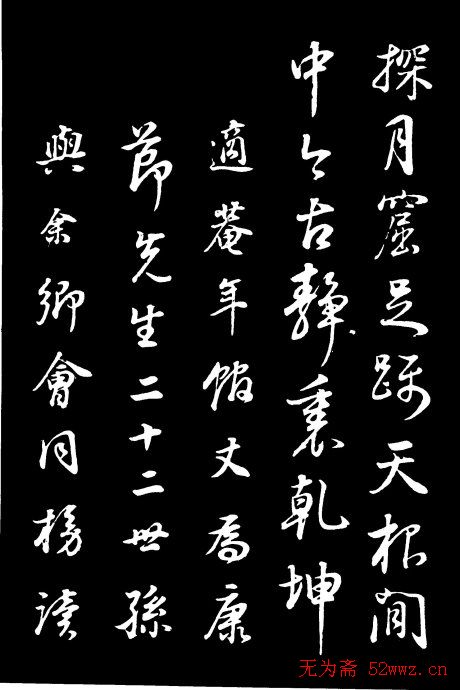 探月窟足踄天根间
中今古静裏乾坤
適菴年館丈为康
節先生二十二世孫
與余鄉會同榜读
无为斋 52wwz.cn